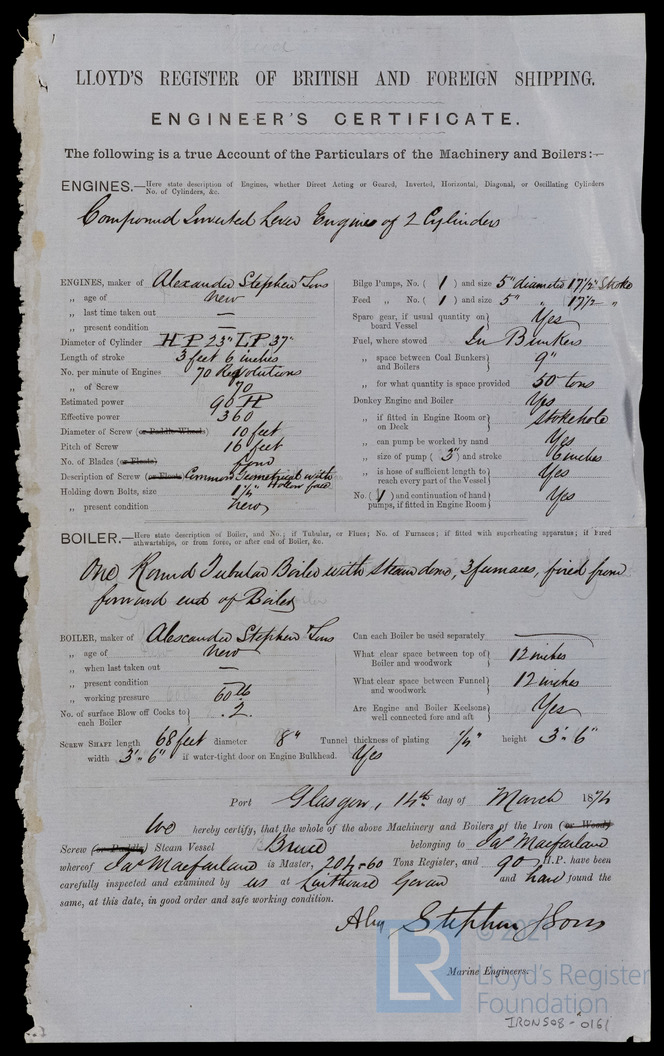 LLOYD'S REGISTER OF BRITISH AND FOREIGN SHIPPING.
ENGINEER'S CERTIFICATE.
The following is a true Account of the Particulars of the Machinery and Boilers:—
ENGINES.—Here state description of Engines, whether Direct Acting or Geared, Inverted, Horizontal, Diagonal, or Oscillating Cylinders
No. of Cylinders, &c.
Compound Inverted Lever Engines of 2 Cylinders
ENGINES, maker of Alexander Stephen & Sons
„ age of New
„ last time taken out —
„ present condition —
Diameter of Cylinder H P 23" L P 37"
Length of stroke 3 feet 6 inches
No. per minute of Engines 70 Revolutions
„ of Screw 70
Estimated power 90 H
Effective power 360
Diameter of Screw (or Paddle Wheels) 10 feet
Pitch of Screw 16 feet
No. of Blades (or Floats) four
Description of Screw (or Floats) Common Geometrical with Hollow face
Holding down Bolts, size 1¼"
„ present condition New
Bilge Pumps, No. ( 1 ) and size 5" diameter 17½" Stroke
Feed „ No. ( 1 ) and size 5" „ 17½ „
Spare gear, if usual quantity on board Vessel } Yes
Fuel, where stowed In Bunkers
„ space between Coal Bunkers and Boilers } 9"
„ for what quantity is space provided 50 tons
Donkey Engine and Boiler Yes
„ if fitted in Engine Room or on Deck } Stokehole
„ can pump be worked by hand Yes
„ size of pump ( 3" ) and stroke 6 inches
„ is hose of sufficient length to reach every part of the Vessel } Yes
No. ( 1 ) and continuation of hand pumps, if fitted in Engine Room } Yes
BOILER.—Here state description of Boiler, and No.; if Tubular, or Flues; No. of Furnaces; if fitted with superheating apparatus; if fired
athwartships, or from fore, or after end of Boiler, &c.
One Round Tubular Boiler with steam dome, 3 furnaces, fired from
forward end of Boiler
BOILER, maker of Alexander Stephen & Sons
„ age of New
„ when last taken out —
„ present condition —
„ working pressure 60 lb
No. of surface Blow off Cocks to each Boiler } 2
Can each Boiler be used separately —
What clear space between top of Boiler and woodwork } 12 inches
What clear space between Funnel and woodwork } 12 inches
Are Engine and Boiler Keelsons well connected fore and aft } Yes
SCREW SHAFT length 68 feet diameter 8" Tunnel thickness of plating ¼" height 3'. 6"
width 3'. 6" if water-tight door on Engine Bulkhead. Yes
Port Glasgow, 14th day of March 1874
We hereby certify, that the whole of the above Machinery and Boilers of the Iron (or Wood)
Screw (or Paddle) Steam Vessel Bruce belonging to Jas Macfarlane
whereof Jas Macfarlane is Master, 204.60 Tons Register, and 90 H.P. have been
carefully inspected and examined by us at Linthouse Govan and have found the
same, at this date, in good order and safe working condition.
Alexr Stephen & Sons
Marine Engineers.
© 2021
LR
Lloyd's Register
Foundation
IRON508-0161